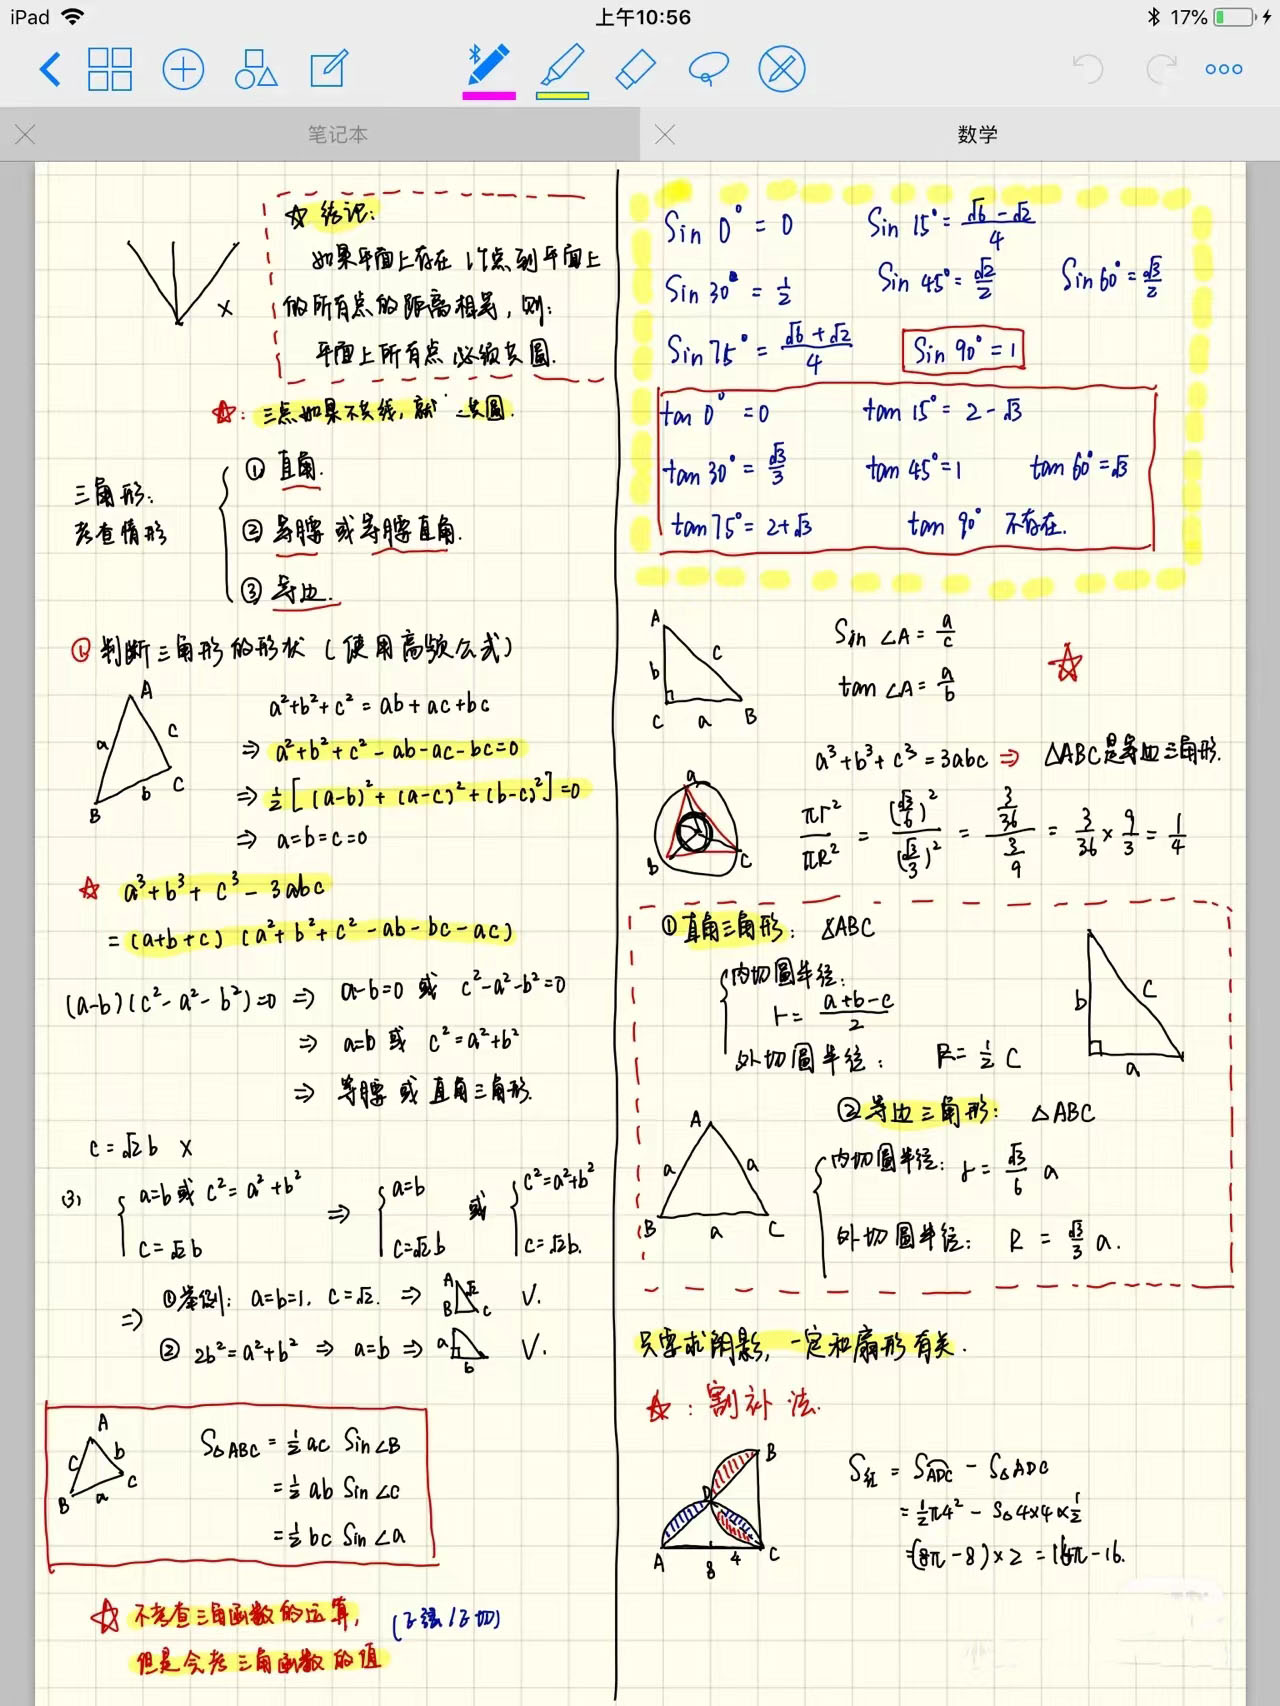 iPad
上午10:56
17%
笔记本
数学
☆ 结论:
如果平面上存在1个点到平面上
的所有点的距离相等，则:
平面上所有点必须共圆.
x
☆: 三点如果不共线, 就 共圆.
三角形:
考查情形
① 直角.
② 等腰 或 等腰直角.
③ 等边.
① 判断三角形的形状 (使用高频公式)
A
a
c
b
C
B
a²+b²+c² = ab+ac+bc
⇒ a²+b²+c²-ab-ac-bc=0
⇒ ½[(a-b)²+(a-c)²+(b-c)²]=0
⇒ a=b=c=0
☆ a³+b³+c³-3abc
= (a+b+c) (a²+b²+c²-ab-bc-ac)
(a-b)(c²-a²-b²)=0 ⇒ a-b=0 或 c²-a²-b²=0
⇒ a=b 或 c²=a²+b²
⇒ 等腰 或 直角三角形.
c=√2b x
(3) { a=b 或 c²=a²+b² ⇒ { a=b 或 { c²=a²+b²
c=√2b c=√2b c=√2b.
⇒ ①举例: a=b=1, c=√2. ⇒ A B C √2 √.
② 2b²=a²+b² ⇒ a=b ⇒ a b √.
A
c b
B a C
S△ABC = ½ac Sin∠B
= ½ab Sin∠c
= ½bc Sin∠a
☆ 不考查三角函数的运算, (正弦/正切)
但是会考三角函数的值
Sin 0° = 0 Sin 15° = (√6-√2)/4
Sin 30° = ½ Sin 45° = √2/2 Sin 60° = √3/2
Sin 75° = (√6+√2)/4 Sin 90° = 1
tan 0° = 0 tan 15° = 2-√3
tan 30° = √3/3 tan 45° = 1 tan 60° = √3
tan 75° = 2+√3 tan 90° 不存在.
A
b c
C a B
Sin ∠A = a/c
tan ∠A = a/b
☆
a³+b³+c³=3abc ⇒ △ABC是等边三角形.
a
B C
πr²/πR² = (√3/6)²/(√3/3)² = (3/36)/(3/9) = 3/36 × 9/3 = 1/4
① 直角三角形: △ABC
内切圆半径:
r = (a+b-c)/2
外切圆半径: R = ½ C
b c
a
② 等边三角形: △ABC
A
a a
B a C
内切圆半径: r = √3/6 a
外切圆半径: R = √3/3 a.
只要求阴影, 一定和扇形有关.
☆: 割补法.
B
D
A 8 4 C
S红 = SADC - S△ADC
= ½π4² - S△4×4×½
=(8π-8)×2 = 16π-16.